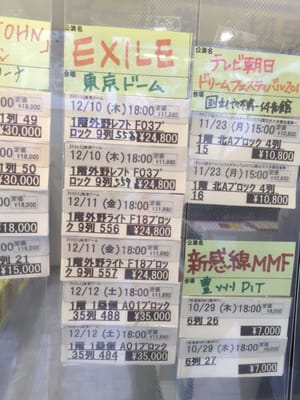 JOHN」
18,000
1列 49
¥30,000
18,000
1列 50
¥30,000
¥18,000
列 21
¥15,000
公演名
EXILE
会場
東京ドーム
12/10 (木)18:00 定価 11,880
1階外野レフト F03ブ
ロック 9列 553番 ¥24,800
12/10 (木)18:00 定価 11,880
1階外野レフト F03ブ
ロック 9列 ¥24,800
12/11 (金)18:00 定価 11,880
1階外野ライト F18ブロッ
ク 9列 556 ¥24,800
12/11 (金)18:00 定価 11,880
1階外野ライト F18ブロッ
ク 9列 557 ¥24,800
12/12 (土)18:00 定価 11,880
1階 1塁側 A01ブロック
35列 488 ¥35,000
12/12 (土)18:00 定価 11,880
1階 1塁側 A01ブロック
35列 484 ¥35,000
公演名
テレビ朝日
ドリームフェスティバル201
会場
国立代々木第一体育館
11/23 (月)15:00 定価
1階 北Aブロック 4列
15 ¥10,800
11/23 (月)15:00 定価
1階 北Aブロック 4列
16 ¥10,800
公演名
新感線MMF
会場
豊州PiT
10/29 (木)18:00 定価
6列 26
¥7,000
10/29 (木)18:00 定価
6列 27
¥7,000